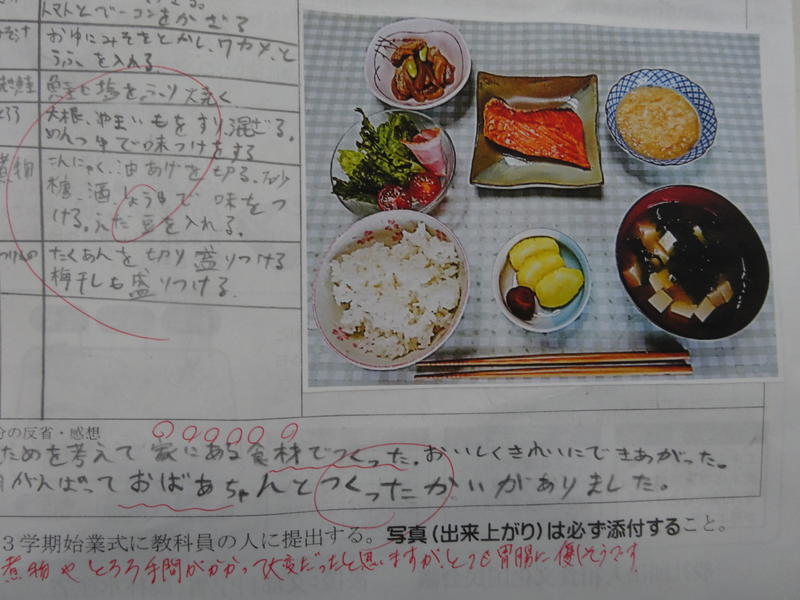 トマトとベーコンをかざる
おゆにみそをとかし、ワカメ、と
うふを入れる。
魚に塩をふり焼く
大根、やまいもをすり混ざる。
めんつゆで味つけをする
煮物
こんにゃく、油あげを切る。
糖、酒、しょうゆで味をつ
ける。えだ豆を入れる。
たくあんを切り盛りつける
梅干しも盛りつける。
分の反省・感想
ためを考えて家にある食材でつくった。おいしくきれいにできあがった。
がんばっておばあちゃんとつくったかいがありました。
3学期始業式に教科員の人に提出する。写真(出来上がり)は必ず添付すること。
煮物やとろろ手間がかかって大変だったと思いますが、とても胃腸に優しそうです